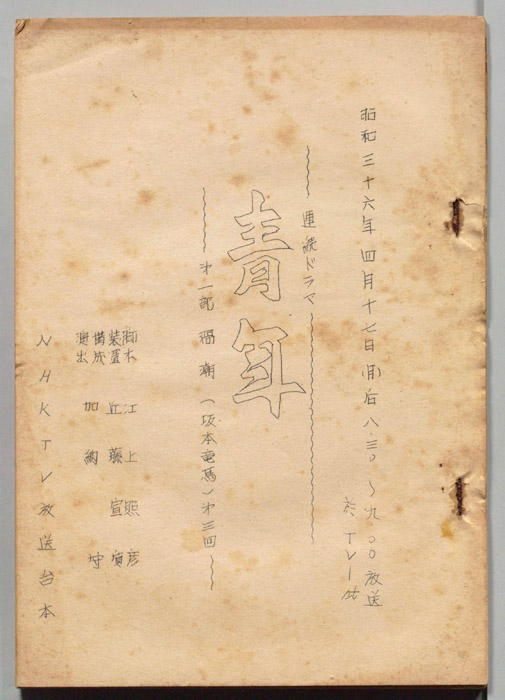 昭和三十六年四月十七日(月)后八.三〇〜九.〇〇放送
於 TV-1 st
連続ドラマ
青年
第一記 潮(坂本竜馬)第三回
脚本 江上照彦
装置 丘藤宣
構成
演出 加納守
NHKTV放送台本